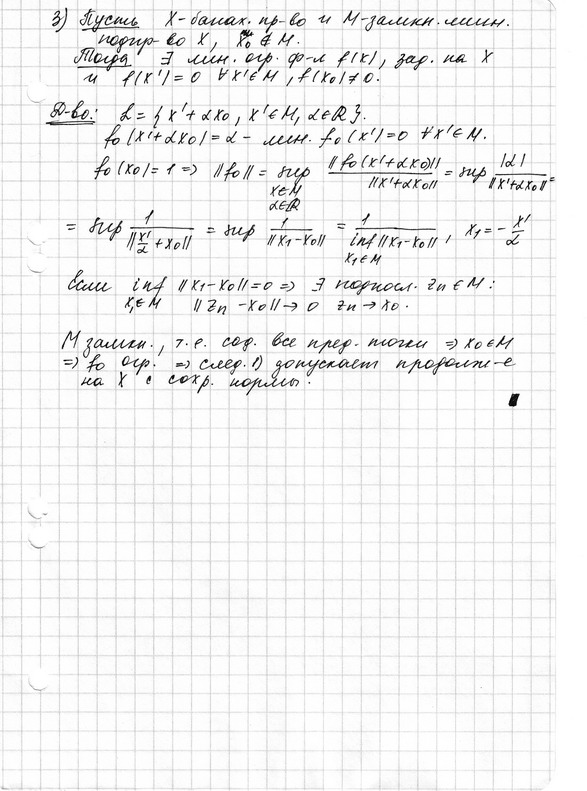 3) Пусть X-банах. пр-во и M-замкн. лин.
подпр-во X, x₀ ∉ M.
Тогда ∃ лин. огр. ф-л f(x), зад. на X
и f(x')=0 ∀x'∈M, f(x₀)≠0.
Д-во: L = { x'+αx₀, x'∈M, α∈R }.
f₀(x'+αx₀) = α - лин. f₀(x')=0 ∀x'∈M.
f₀(x₀)=1 => ||f₀|| = sup_{x∈M, α∈R} ||f₀(x'+αx₀)|| / ||x'+αx₀|| = sup |α| / ||x'+αx₀|| =
= sup 1 / ||x'/α + x₀|| = sup 1 / ||x₁-x₀|| = 1 / inf_{x₁∈M} ||x₁-x₀||, x₁ = -x'/α
Если inf_{x₁∈M} ||x₁-x₀||=0 => ∃ подпосл. zₙ∈M:
||zₙ-x₀||→0 zₙ→x₀.
M замкн., т.е. сод. все пред. точки => x₀∈M
=> f₀ огр. => след. 1) допускает продолж-е
на X с сохр. нормы.